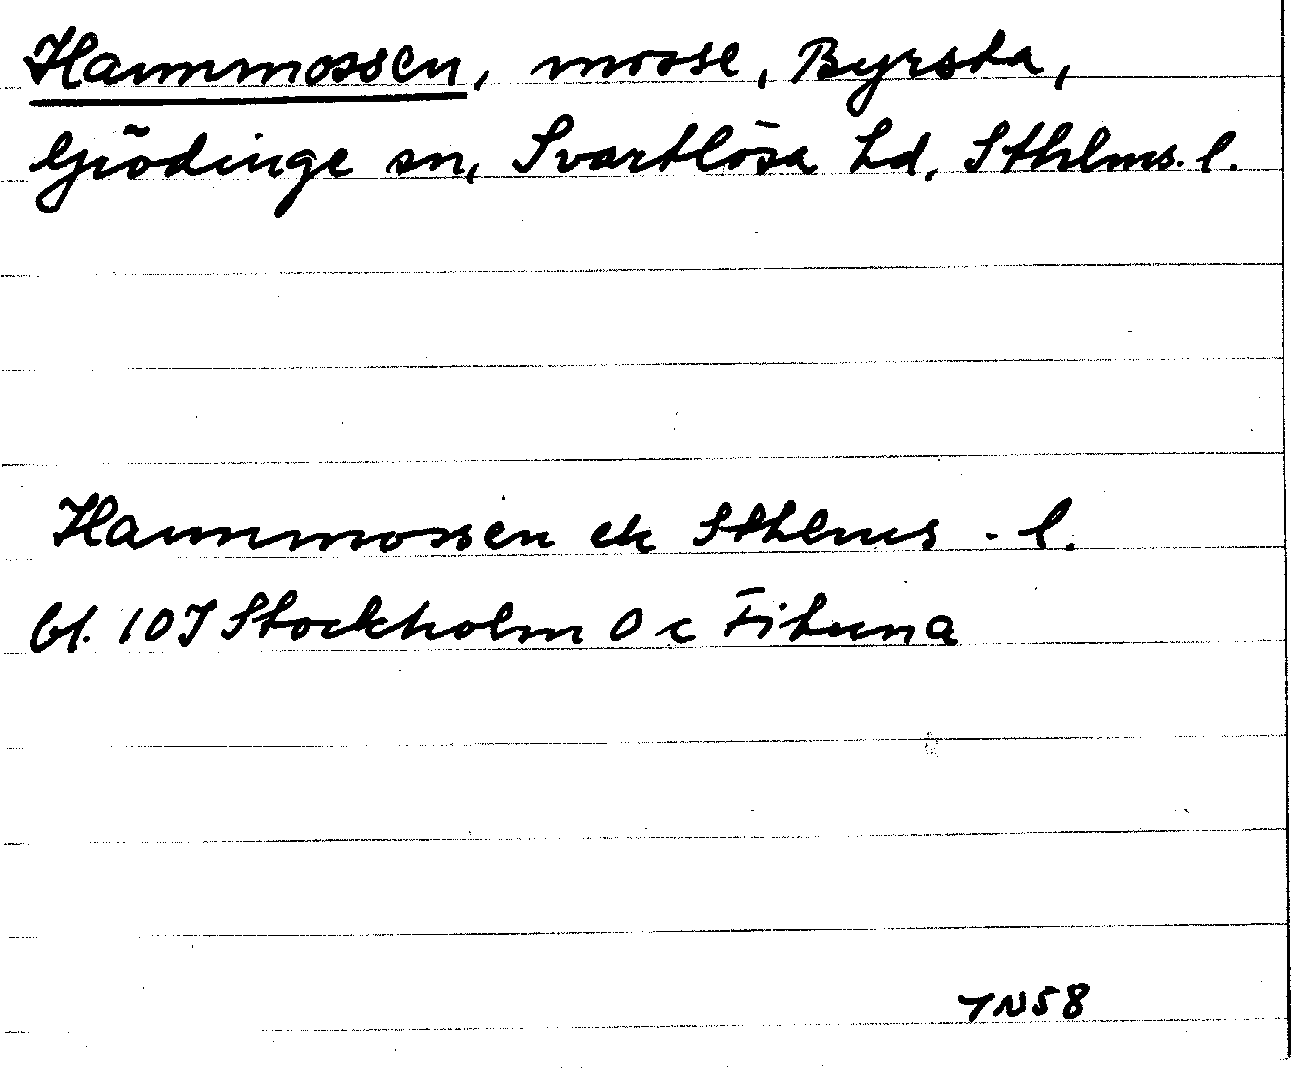 Hammmossen, mosse, Byrsta,
Grödinge sn, Svartlösa hd, Sthlms. l.
Hammmossen ek Sthlms - l.
bl. 10I Stockholm O c Fituna
TN58